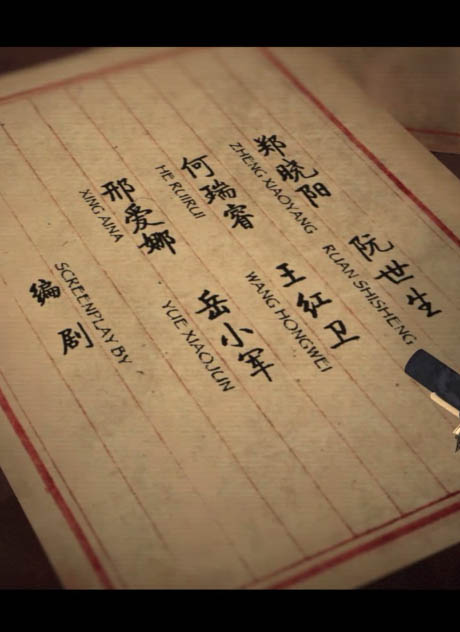 郑晓阳
ZHENG XIAOYANG
阮世生
RUAN SHISHENG
何瑞睿
HE RUIRUI
王红卫
WANG HONGWEI
邢爱娜
XING AINA
岳小军
YUE XIAOJUN
编剧
SCREENPLAY BY